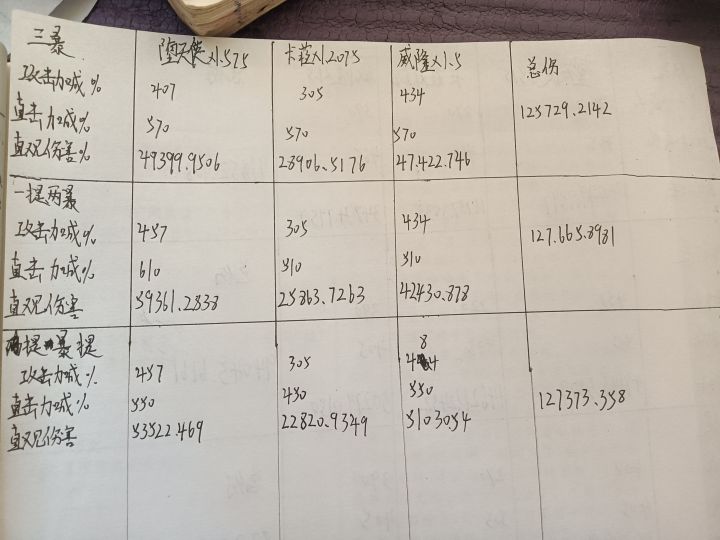 三暴 堕天使×1.575 卡莅×1.2075 威隆×1.5 总伤
攻击加成% 407 305 434
直击加成% 570 570 570 125729.2142
直观伤害% 49399.9506 28906.5176 47.422.746
一提两暴
攻击加成% 457 305 434 127.665.8981
直击加成% 610 510 510
直观伤害 59361.2838 25863.7263 42430.878
提 暴提
攻击加成% 457 305 484
直击加成% 550 450 550 127373.358
直观伤害 53522.469 22820.9349 51030.54